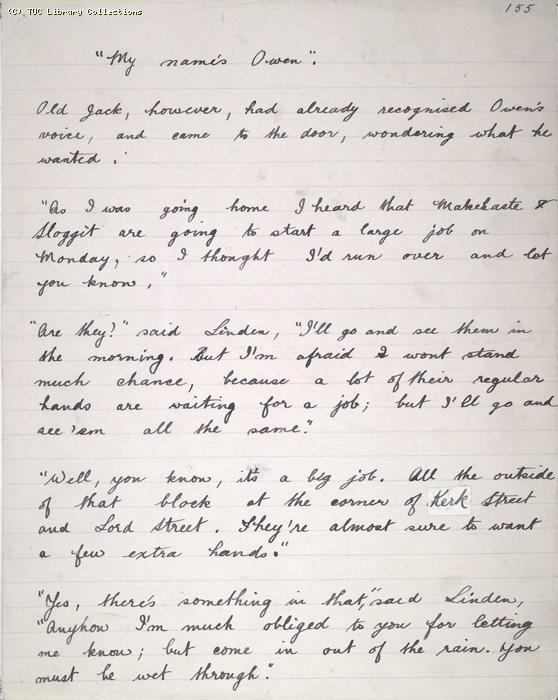 (C) TUC Library Collections
155
"My name's Owen".
Old Jack, however, had already recognised Owen's
voice, and came to the door, wondering what he
wanted.
"As I was going home I heard that Makehaste &
Sloggit are going to start a large job on
Monday, so I thought I'd run over and let
you know."
"Are they?" said Linden, "I'll go and see them in
the morning. But I'm afraid I wont stand
much chance, because a lot of their regular
hands are waiting for a job; but I'll go and
see 'em all the same."
"Well, you know, it's a big job. All the outside
of that block at the corner of Kerk Street
and Lord Street. They're almost sure to want
a few extra hands."
"Yes, there's something in that," said Linden,
"Anyhow I'm much obliged to you for letting
me know; but come in out of the rain. You
must be wet through".